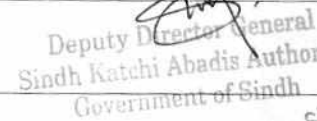 Deputy Director General
Sindh Katchi Abadis Author
Government of Sindh